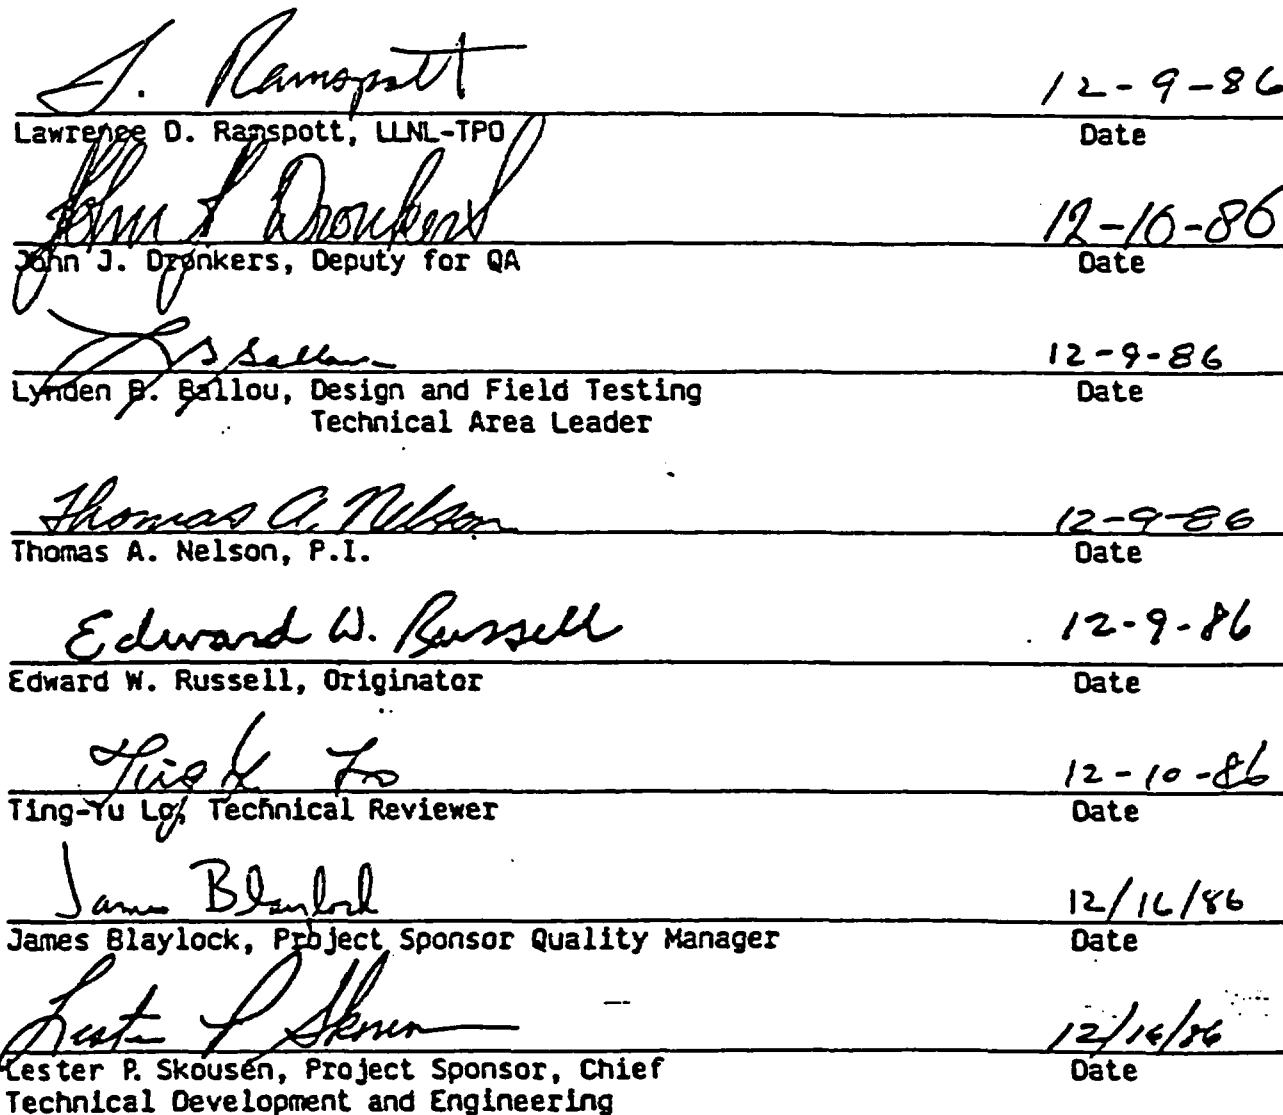 L. Ramspott 12-9-86
Lawrence D. Ramspott, LLNL-TPO Date
John J Dronkers 12-10-86
John J. Dronkers, Deputy for QA Date
12-9-86
Lynden B. Ballou, Design and Field Testing Date
Technical Area Leader
Thomas A. Nelson 12-9-86
Thomas A. Nelson, P.I. Date
Edward W. Russell 12-9-86
Edward W. Russell, Originator Date
Ting Y Lo 12-10-86
Ting-Yu Lo, Technical Reviewer Date
James Blaylock 12/16/86
James Blaylock, Project Sponsor Quality Manager Date
Lester P Skousen 12/16/86
Lester P. Skousen, Project Sponsor, Chief Date
Technical Development and Engineering